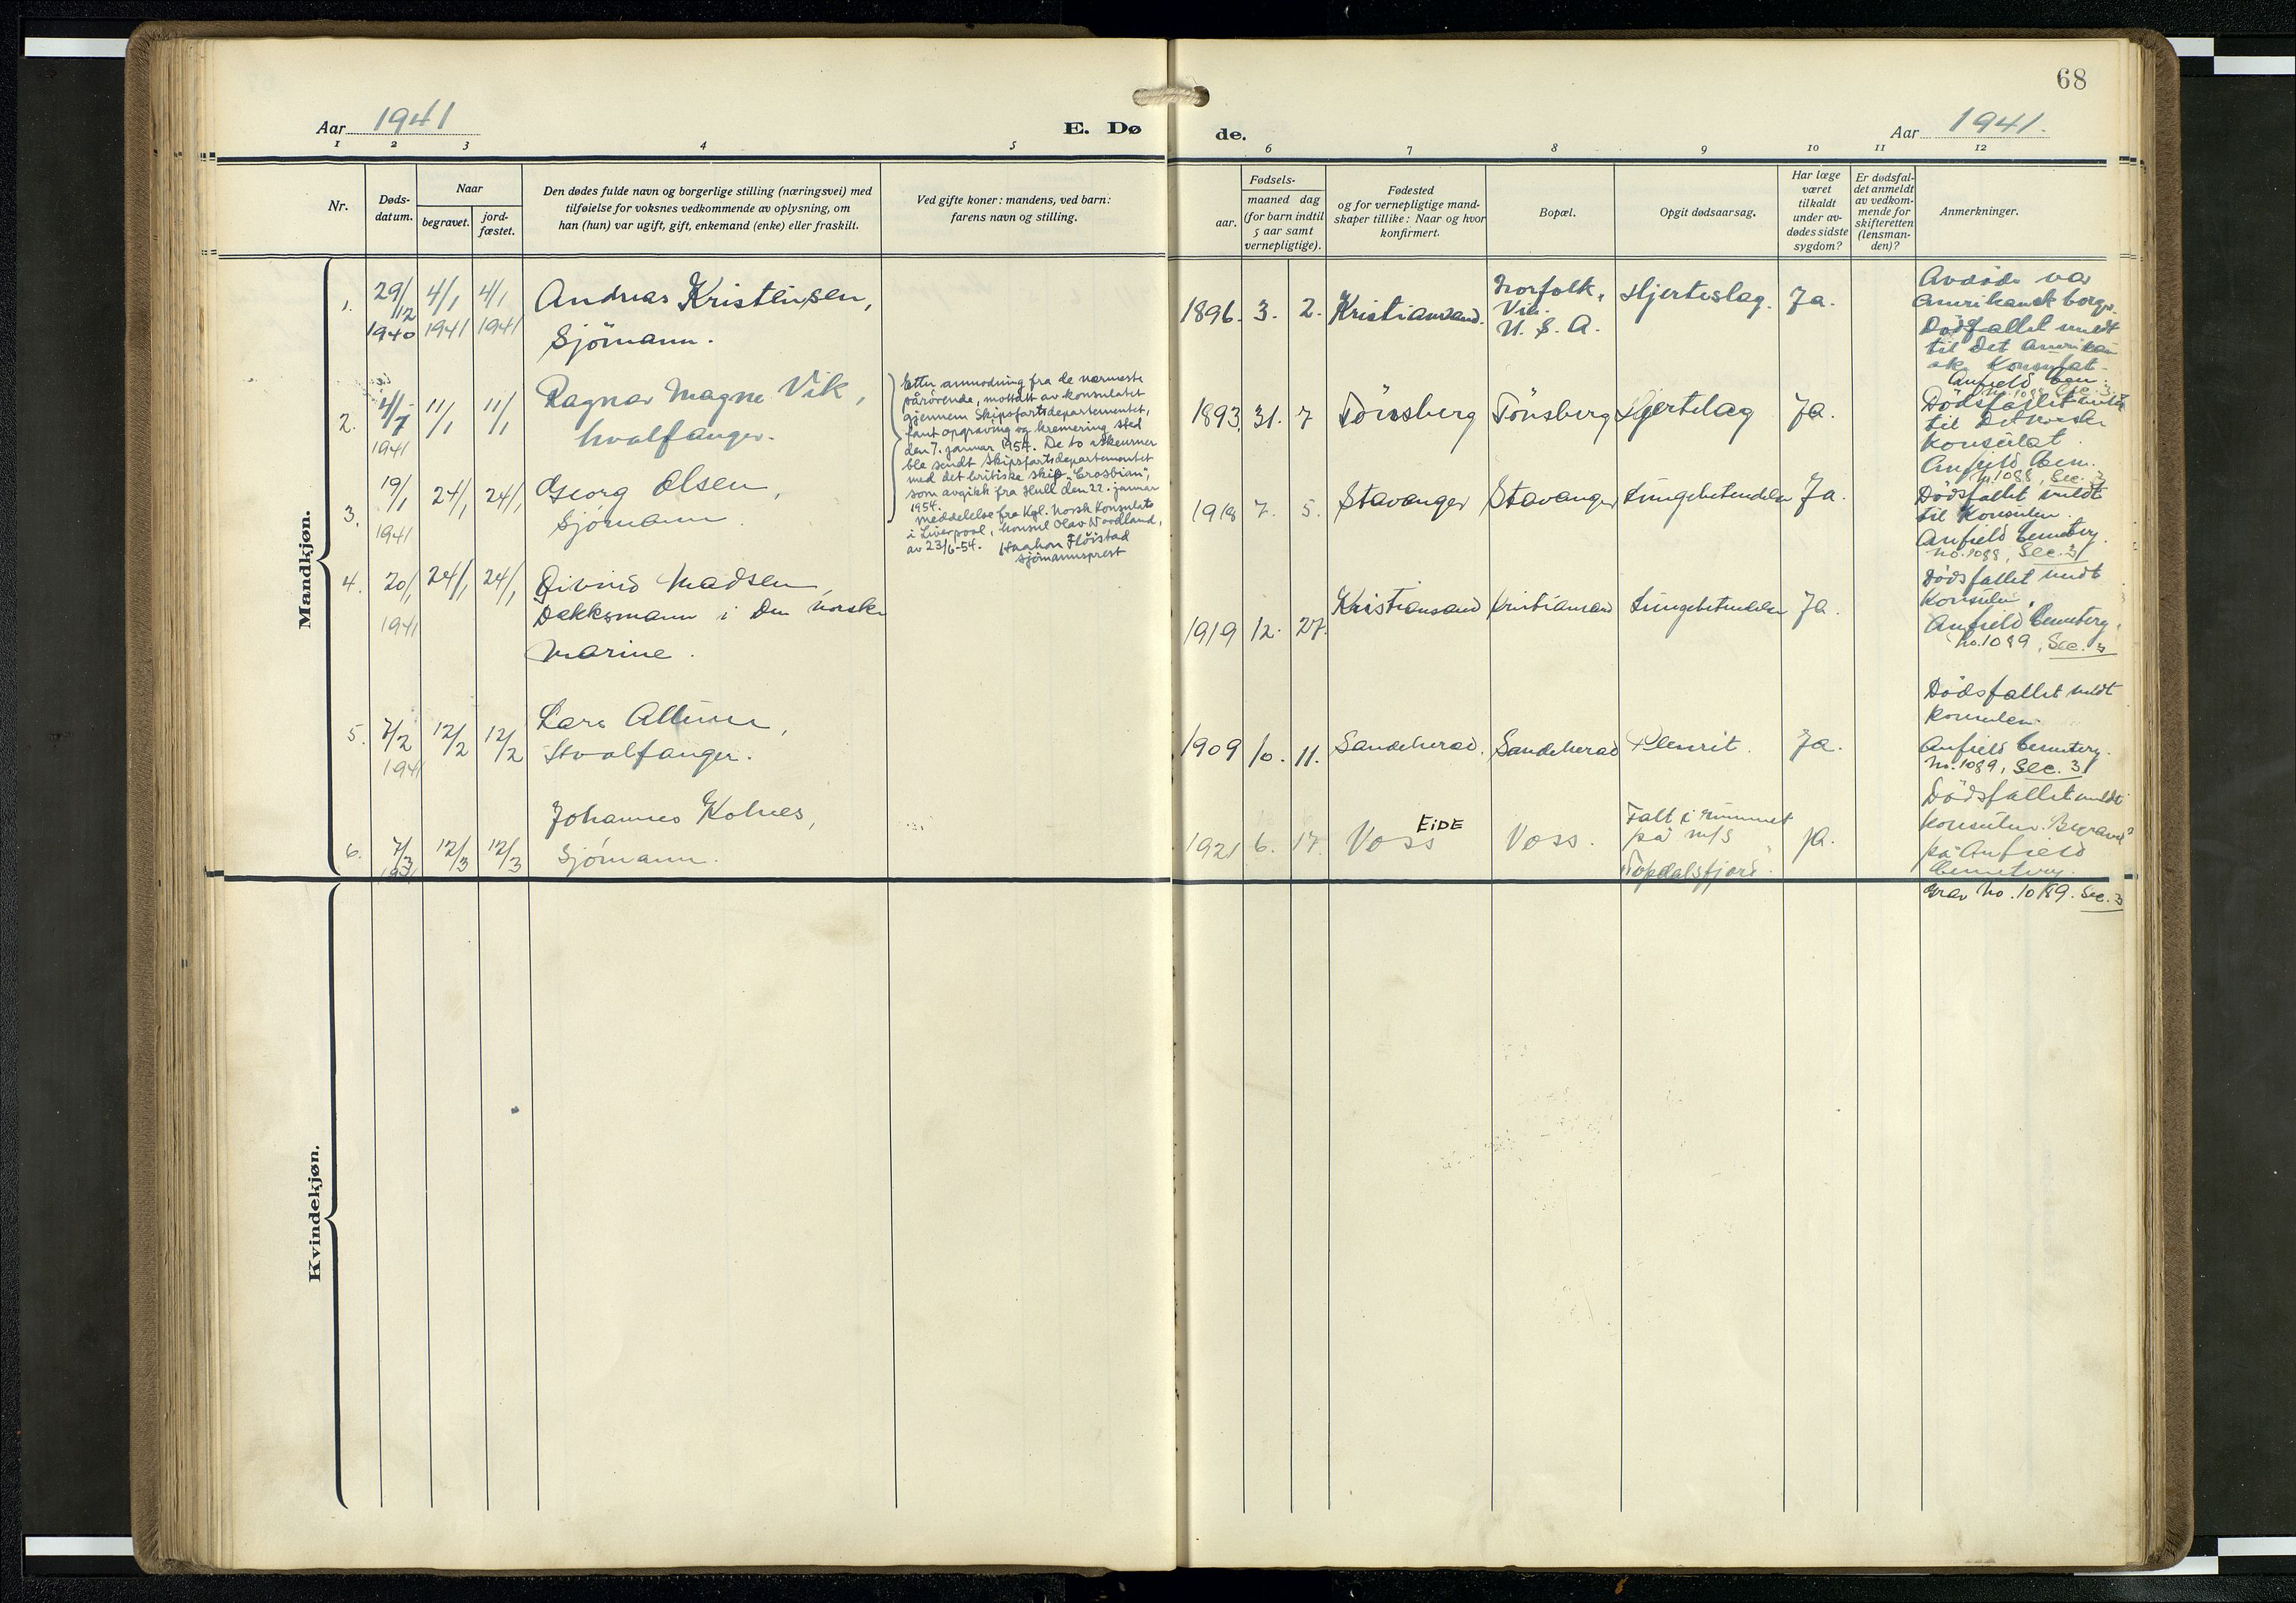 68
Aar 1941
E. Dø
de.
Aar 1941.
1 2 3 4 5 6 7 8 9 10 11 12
Nr.
Døds-
datum.
Naar
begravet.
jord-
fæstet.
Den dødes fulde navn og borgerlige stilling (næringsvei) med
tilføielse for voksnes vedkommende av oplysning, om
han (hun) var ugift, gift, enkemand (enke) eller fraskilt.
Ved gifte koner: mandens, ved barn:
farens navn og stilling.
Fødsels-
aar.
maaned dag
(for barn indtil
5 aar samt
vernepligtige).
Fødested
og for vernepligtige mand-
skaper tillike: Naar og hvor
konfirmert.
Bopæl.
Opgit dødsaarsag.
Har læge
været
tilkaldt
under av-
dødes sidste
sygdom?
Er dødsfal-
det anmeldt
av vedkom-
mende for
skifteretten
(lensman-
den)?
Anmerkninger.
Mandkjøn.
1. 29/12 1940 4/1 1941 4/1 1941
Andreas Kristensen,
Sjömann.
1896. 3. 2. Kristiansand.
Norfolk,
Vir.
U. S. A.
Hjerteslag. Ja.
Avdöde var
Amerikansk borger.
Dödsfallet meldt
til det Amerikan
ske Konsulat
Anfield Cem.
2. 4/7 1941 11/1 11/1
Ragnar Magne Vik,
hvalfanger.
Etter anmodning fra de nærmeste
pårörende, mottatt av konsulatet
gjennem Skipsfartsdepartementet,
fant opgraving og kremering sted
den 7. januar 1954. De to askeurner
ble sendt Skipsfartsdepartementet
med det britiske skip "Crosbian",
som avgikk fra Hull den 22. januar
1954.
Meddelelse fra Kgl. Norsk Konsulat
i Liverpool, konsul Olav Nordland,
av 23/6-54. Haakon Flöistad
sjömannsprest
1893. 31. 7 Tönsberg Tönsberg Hjertelag Ja.
Dödsfallet meldt
til Det norske
Konsulat.
Anfield Cem.
No. 1088, Sec. 3
3. 19/1 1941 24/1 24/1
Georg Olsen,
Sjömann.
1918 7. 5. Stavanger Stavanger Lungebetendelse Ja.
Dödsfallet meldt
til Konsulen.
Anfield Cemetery.
No. 1088, Sec. 3
4. 20/1 1941 24/1 24/1
Öivind Madsen,
Dekksmann i Den norske
Marine.
1919 12. 27. Kristiansand Kristiansand Lungebetendelse Ja.
Dödsfallet meldt
Konsulen.
Anfield Cemetery,
No. 1089, Sec. 3
5. 7/2 1941 12/2 12/2
Lars
Hvalfanger.
1909 10. 11. Sandeherad. Sandeherad Pleurit. Ja.
Dödsfallet meldt
Konsulen.
Anfield Cemetery.
No. 1089, Sec. 3
6. 7/3 12/3 12/3
Johannes Kolnes,
Sjömann.
1921 6. 17. Voss EIDE Voss.
Falt i rummet
på m/s
"Topdalsfjord".
Ja.
Dödsfallet meldt
konsulen. Begravd
på Anfield
Cemetery.
Grav No. 1089. Sec. 3
Kvindekjøn.